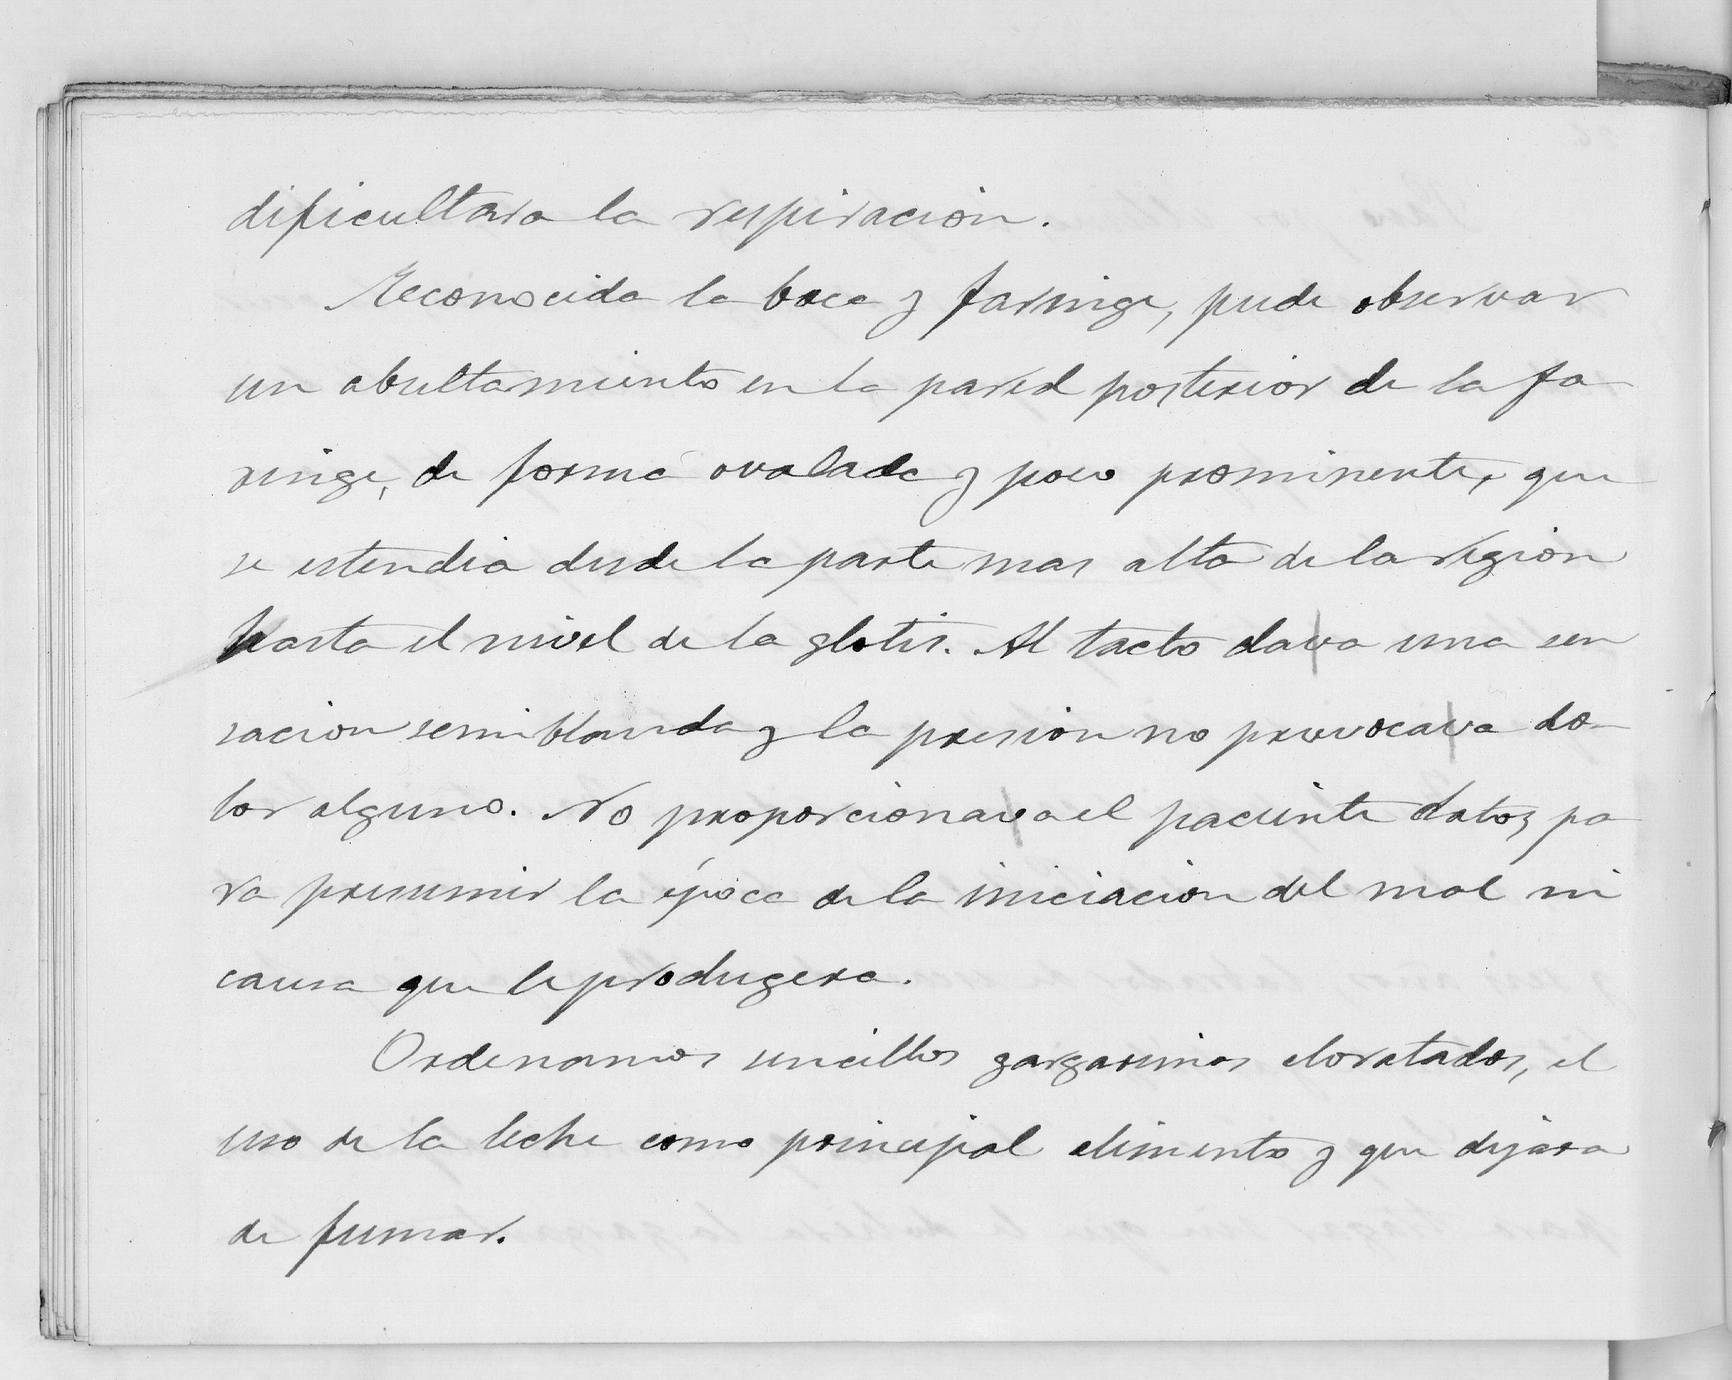 dificultara la respiración.
Reconocida la boca y faringe, pude observar
un abultamiento en la pared posterior de la fa
ringe, de forma ovalada y poco prominente, que
se estendia desde la parte mas alta de la región
hasta el nivel de la glotis. Al tacto dava una sen
sacion semiblanda y la presión no provocava do-
lor alguno. No proporcionava el paciente datos pa
ra presumir la época de la iniciacion del mal ni
causa que le produgera.
Ordenamos sencillos gargarismos cloratados, el
uso de la leche como principal alimento y que dejara
de fumar.